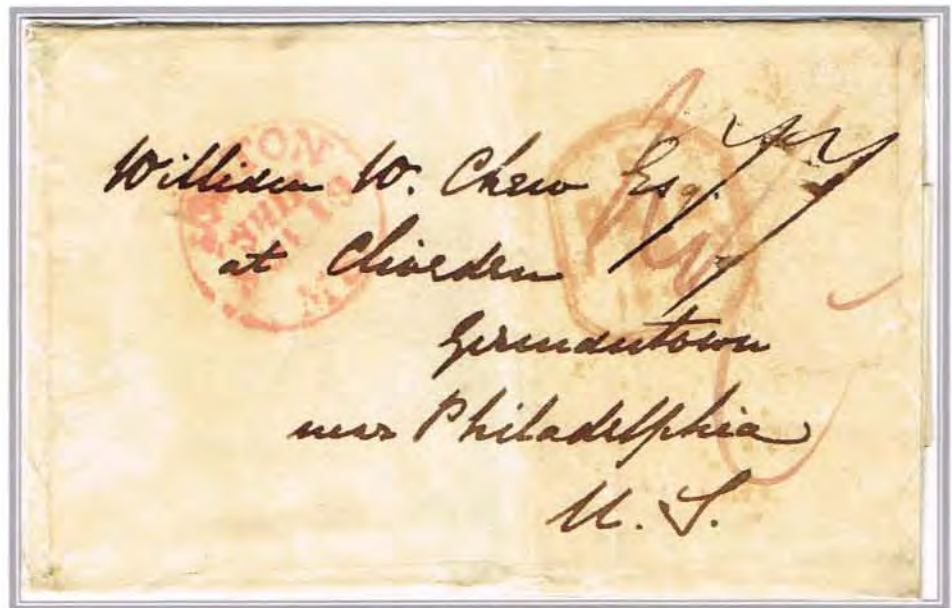 William W. Chew Esq.
at Cliveden
Germantown
near Philadelphia
U. S.